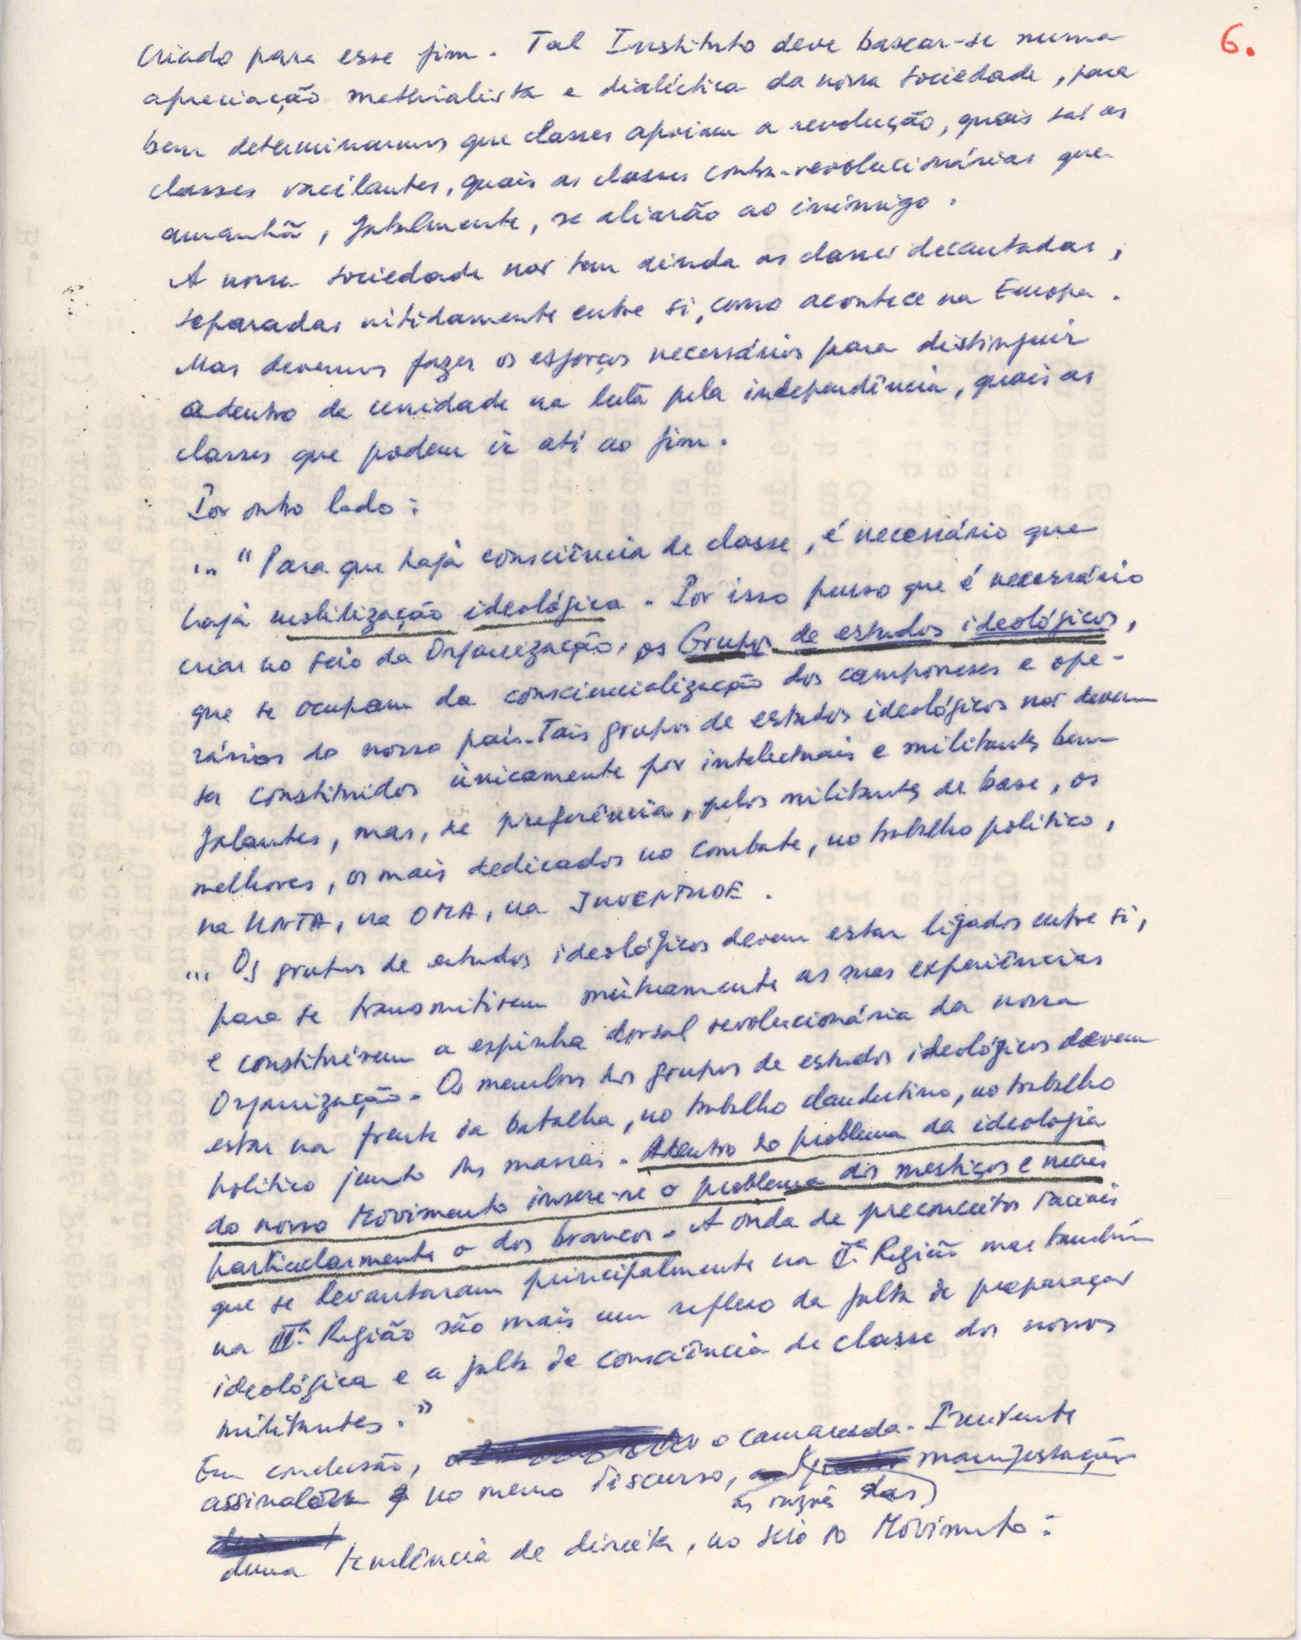 6.
criado para esse fim. Tal Instituto deve basear-se numa
apreciação materialista e dialéctica da nossa sociedade, para
bem determinarmos que classes apoiam a revolução, quais são as
classes vacilantes, quais as classes contra-revolucionárias que
amanhã, fatalmente, se aliarão ao inimigo.
A nossa sociedade não tem ainda as classes decantadas,
separadas nitidamente entre si, como acontece na Europa.
Mas devemos fazer os esforços necessários para distinguir
adentro da unidade na luta pela independência, quais as
classes que podem ir até ao fim.
Por outro lado:
... "Para que haja consciência de classe, é necessário que
haja mobilização ideológica. Por isso penso que é necessário
criar no seio da Organização, os Grupos de estudos ideológicos,
que se ocupam da consciencialização dos camponeses e ope-
rários do nosso país. Tais grupos de estudos ideológicos não devem
ser constituidos únicamente por intelectuais e militantes bem
falantes, mas, de preferência, pelos militantes de base, os
melhores, os mais dedicados no combate, no trabalho político,
na UNTA, na OMA, na JUVENTUDE.
... Os grupos de estudos ideológicos devem estar ligados entre si,
para se transmitirem mútuamente as suas experiências
e constituírem a espinha dorsal revolucionária da nossa
Organização. Os membros dos grupos de estudos ideológicos devem
estar na frente da batalha, no trabalho clandestino, no trabalho
político junto das massas. Adentro do problema da ideologia
do nosso Movimento insere-se o problema dos mestiços e mais
particularmente o dos brancos. A onda de preconceitos raciais
que se levantaram principalmente na Iª Região mas também
na IIIª Região são mais um reflexo da falta de preparação
ideológica e a falta de consciência de classe dos nossos
militantes."
Em conclusão, o camarada Presidente
assinalou no mesmo discurso, manifestação
as razões das
duma tendência de direita, no seio do Movimento: